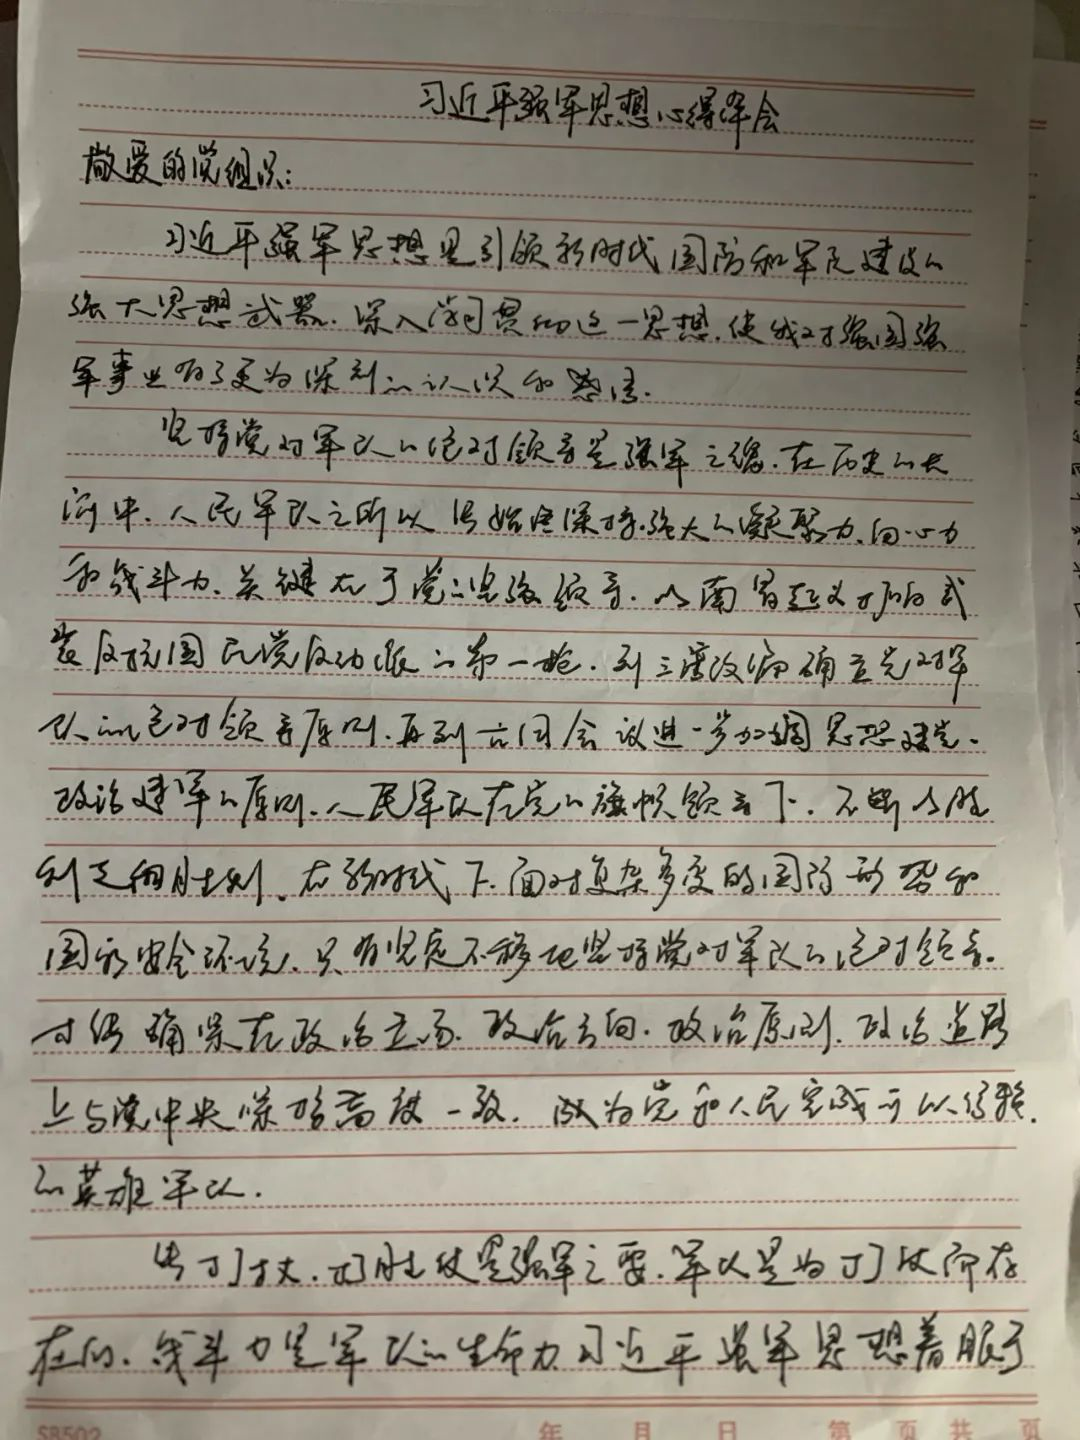 习近平强军思想心得体会
敬爱的党组织:
习近平强军思想是引领新时代国防和军队建设的
强大思想武器.深入学习贯彻这一思想,使我对强国强
军事业有了更为深刻的认识和感悟.
坚持党对军队的绝对领导是强军之魂.在历史的长
河中,人民军队之所以能始终保持强大的凝聚力、向心力
和战斗力,关键在于党的坚强领导.从南昌起义打响武
装反抗国民党反动派的第一枪,到三湾改编确立党对军
队的绝对领导原则,再到古田会议进一步加强思想建党、
政治建军的原则,人民军队在党的旗帜领导下,不断从胜
利走向胜利、在新时代下,面对复杂多变的国际形势和
国家安全环境,只有坚定不移地坚持党对军队的绝对领导.
才能确保在政治立场、政治方向、政治原则、政治道路
上与党中央保持高度一致,成为党和人民完成可以信赖.
的英雄军队.
能打仗、打胜仗是强军之要,军队是为打仗而存
在的,战斗力是军队的生命力习近平强军思想着眼于
SB502 年 月 日 第 页 共 页